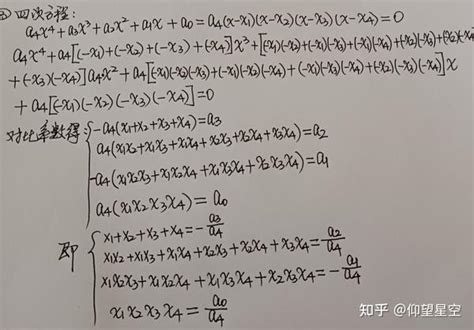 ③ 四次方程:
a₄x⁴+a₃x³+a₂x²+a₁x+a₀=a₄(x-x₁)(x-x₂)(x-x₃)(x-x₄)=0
a₄x⁴+a₄[(-x₁)+(-x₂)+(-x₃)+(-x₄)]x³+[(-x₁)(-x₂)+(-x₁)(-x₃)+(-x₁)(-x₄)+(-x₂)(-x₃)+(-x₂)(-x₄)
+(-x₃)(-x₄)]a₄x²+a₄[(-x₁)(-x₂)(-x₃)+(-x₁)(-x₂)(-x₄)+(-x₁)(-x₃)(-x₄)+(-x₂)(-x₃)(-x₄)]x
+a₄[(-x₁)(-x₂)(-x₃)(-x₄)]=0
对比系数得: -a₄(x₁+x₂+x₃+x₄)=a₃
a₄(x₁x₂+x₁x₃+x₁x₄+x₂x₃+x₂x₄+x₃x₄)=a₂
-a₄(x₁x₂x₃+x₁x₂x₄+x₁x₃x₄+x₂x₃x₄)=a₁
a₄(x₁x₂x₃x₄)=a₀
即 x₁+x₂+x₃+x₄=-a₃/a₄
x₁x₂+x₁x₃+x₁x₄+x₂x₃+x₂x₄+x₃x₄=a₂/a₄
x₁x₂x₃+x₁x₂x₄+x₁x₃x₄+x₂x₃x₄=-a₁/a₄
x₁x₂x₃x₄=a₀/a₄
知乎 @仰望星空